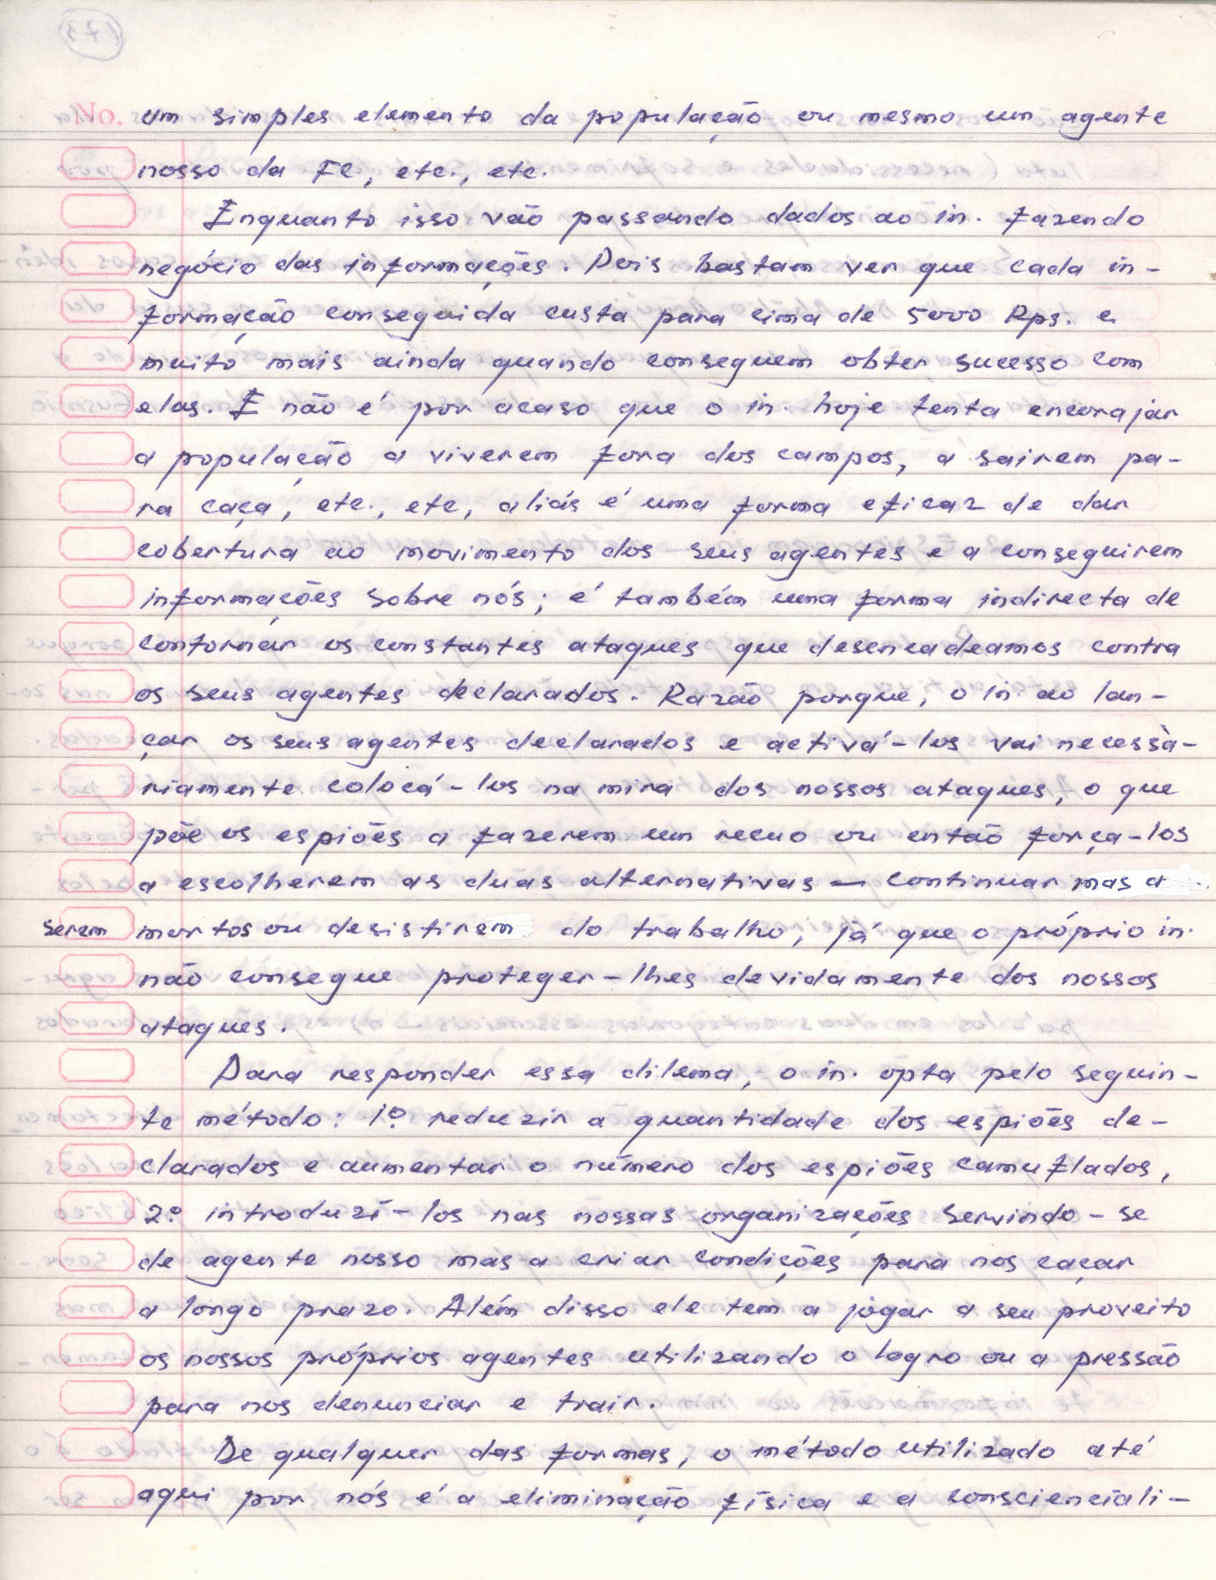 No. um simples elemento da população ou mesmo um agente
nosso da FC, etc., etc.
Enquanto isso vão passando dados ao in. fazendo
negócio das informações. Pois bastam ver que cada in-
formação conseguida custa para cima de 5000 Rps. e
muito mais ainda quando conseguem obter sucesso com
elas. E não é por acaso que o in. hoje tenta encorajar
a população a viverem fora dos campos, a sairem pa-
ra caça, etc., etc, aliás é uma forma eficaz de dar
cobertura ao movimento dos seus agentes e a conseguirem
informações sobre nós; é também uma forma indirecta de
contornar os constantes ataques que desencadeamos contra
os seus agentes declarados. Razão porque, o in ao lan-
çar os seus agentes declarados e activá-los vai necessà-
riamente colocá-los na mira dos nossos ataques, o que
põe os espiões a fazerem um recuo ou então força-los
a escolherem as duas alternativas — continuar mas a
serem mortos ou desistirem do trabalho, já que o próprio in.
não consegue proteger-lhes devidamente dos nossos
ataques.
Para responder essa dilema, o in. opta pelo seguin-
te método: 1º reduzir a quantidade dos espiões de-
clarados e aumentar o número dos espiões camuflados,
2º introduzí-los nas nossas organizações servindo-se
de agente nosso mas a criar condições para nos caçar
a longo prazo. Além disso ele tem a jogar a seu proveito
os nossos próprios agentes utilizando o logro ou a pressão
para nos denunciar e trair.
De qualquer das formas, o método utilizado até
aqui por nós é a eliminação física e a conscienciali-